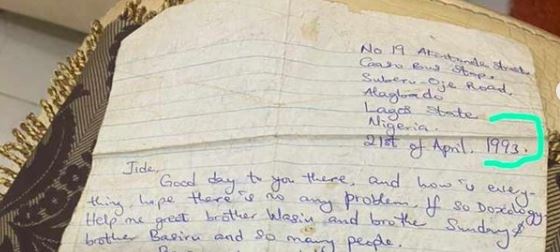 No 19 Akintunde Street
Coaso Bus Stop
Suberu-Oje Road.
Alagbado
Lagos State
Nigeria.
21st of April. 1993.
Jide,
Good day to you there, and how is every-
thing, hope there is no any problem. If so Doxology
Help me greet brother Wasiu and brothe Sunday &
brother Basiru and so many people.